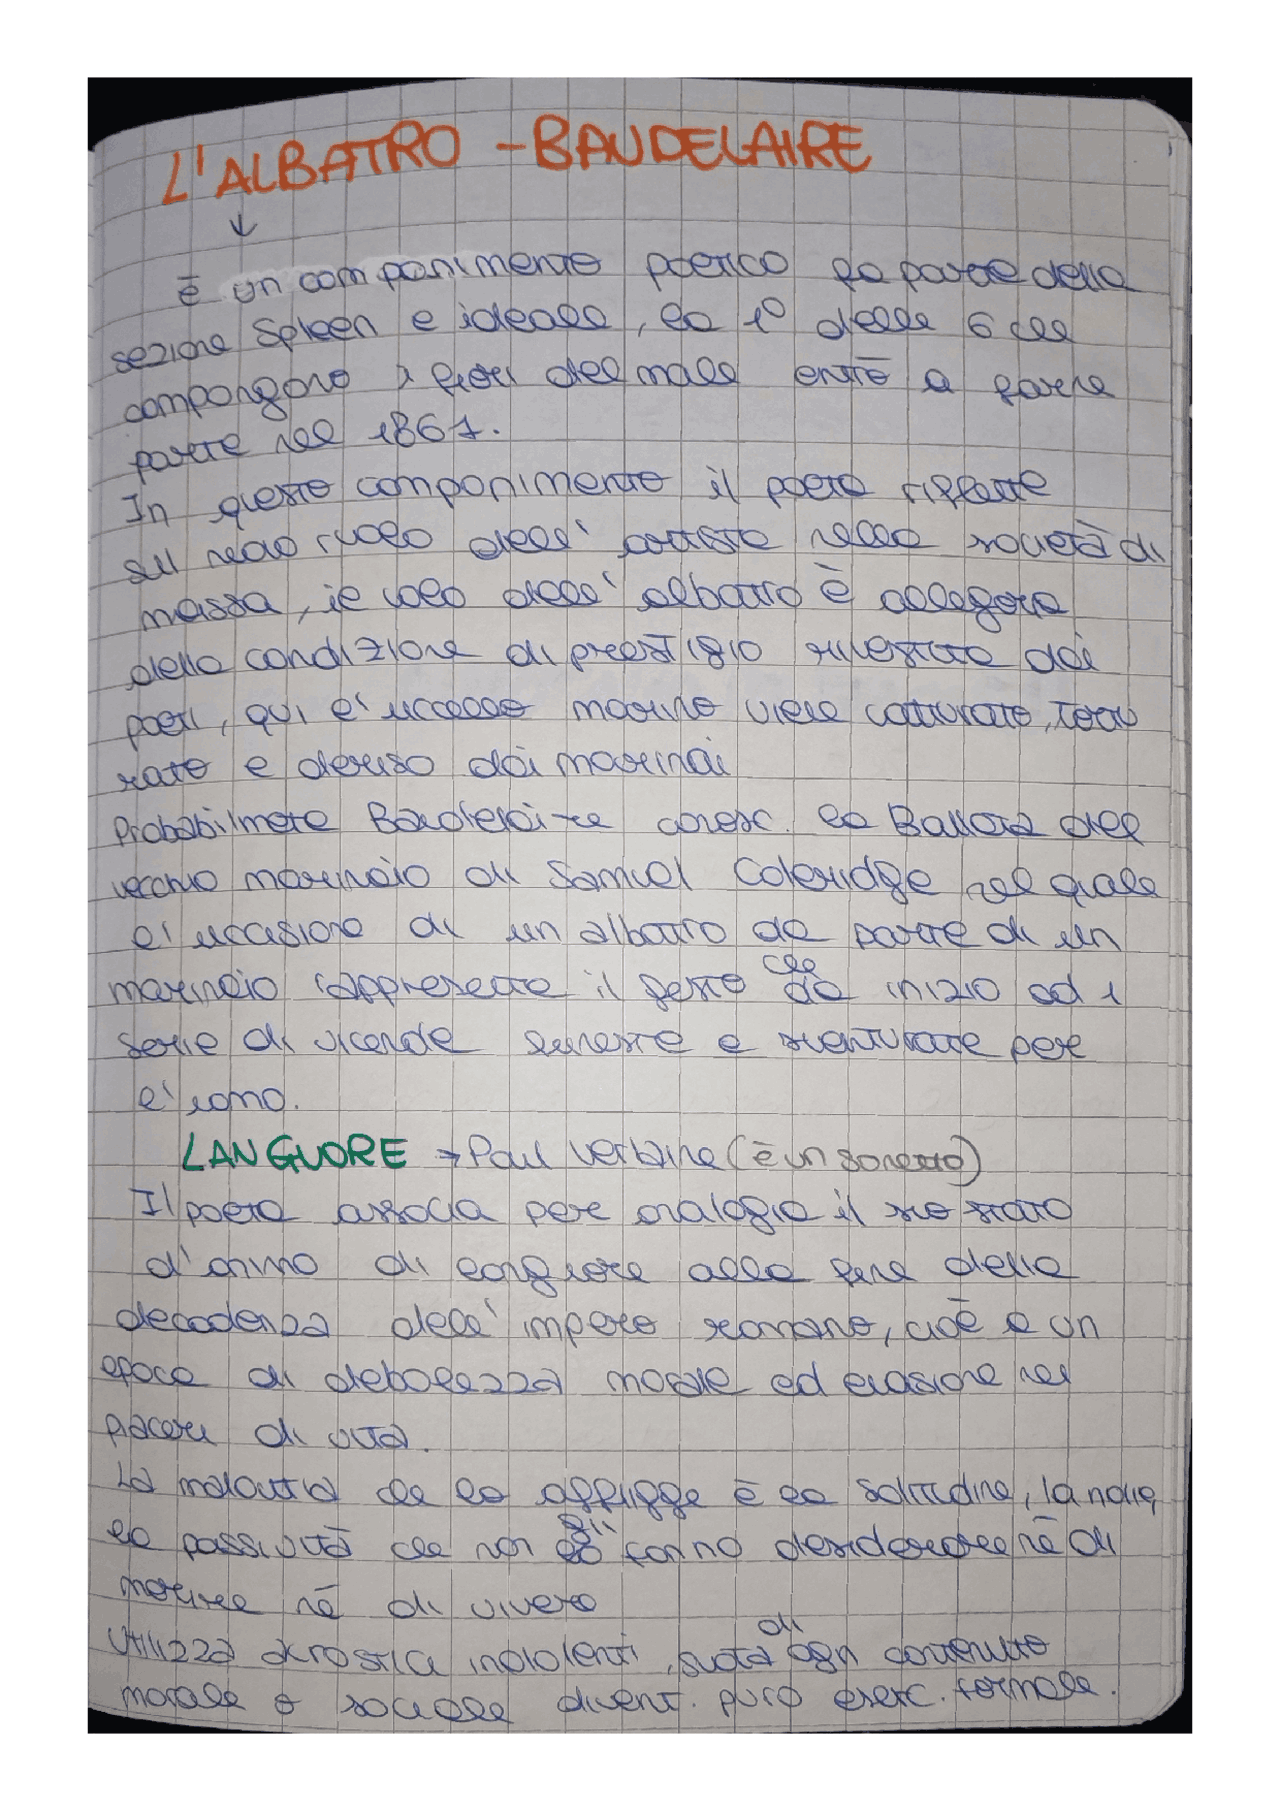 L'ALBATRO - BAUDELAIRE
↓
è un componimento poetico fa parte della
sezione Spleen e ideale, la 1° delle 6 che
compongono I fiori del male entrò a farne
parte nel 1861.
In questo componimento il poeta riflette
sul ruolo dell'artista nella società di
massa, il volo dell'albatro è allegoria
della condizione di prestigio rivestita dai
poeti, qui l'uccello marino viene catturato, tortu
rato e deriso dai marinai
Probabilmete Baudelaire conosc. la Ballata del
vecchio marinaio di Samuel Coleridge nel quale
l'uccisione di un albatro da parte di un
marinaio rappresenta il gesto che dà inizio ad 1
serie di vicende funeste e sventurate per
l'uomo.
LANGUORE → Paul Verlaine (è un sonetto)
Il poeta associa per analogia il suo stato
d'animo di languore alla fine della
decadenza dell'impero romano, cioè a un
epoca di debolezza morale ed evasione nei
piaceri di vita.
La malattia che lo affligge è la solitudine, la noia,
la passività che non gli fanno desiderare nè di
morire nè di vivere
Utilizza acrostici indolenti, di ogn contenuto
morale o sociale divent. puro eserc. formale.